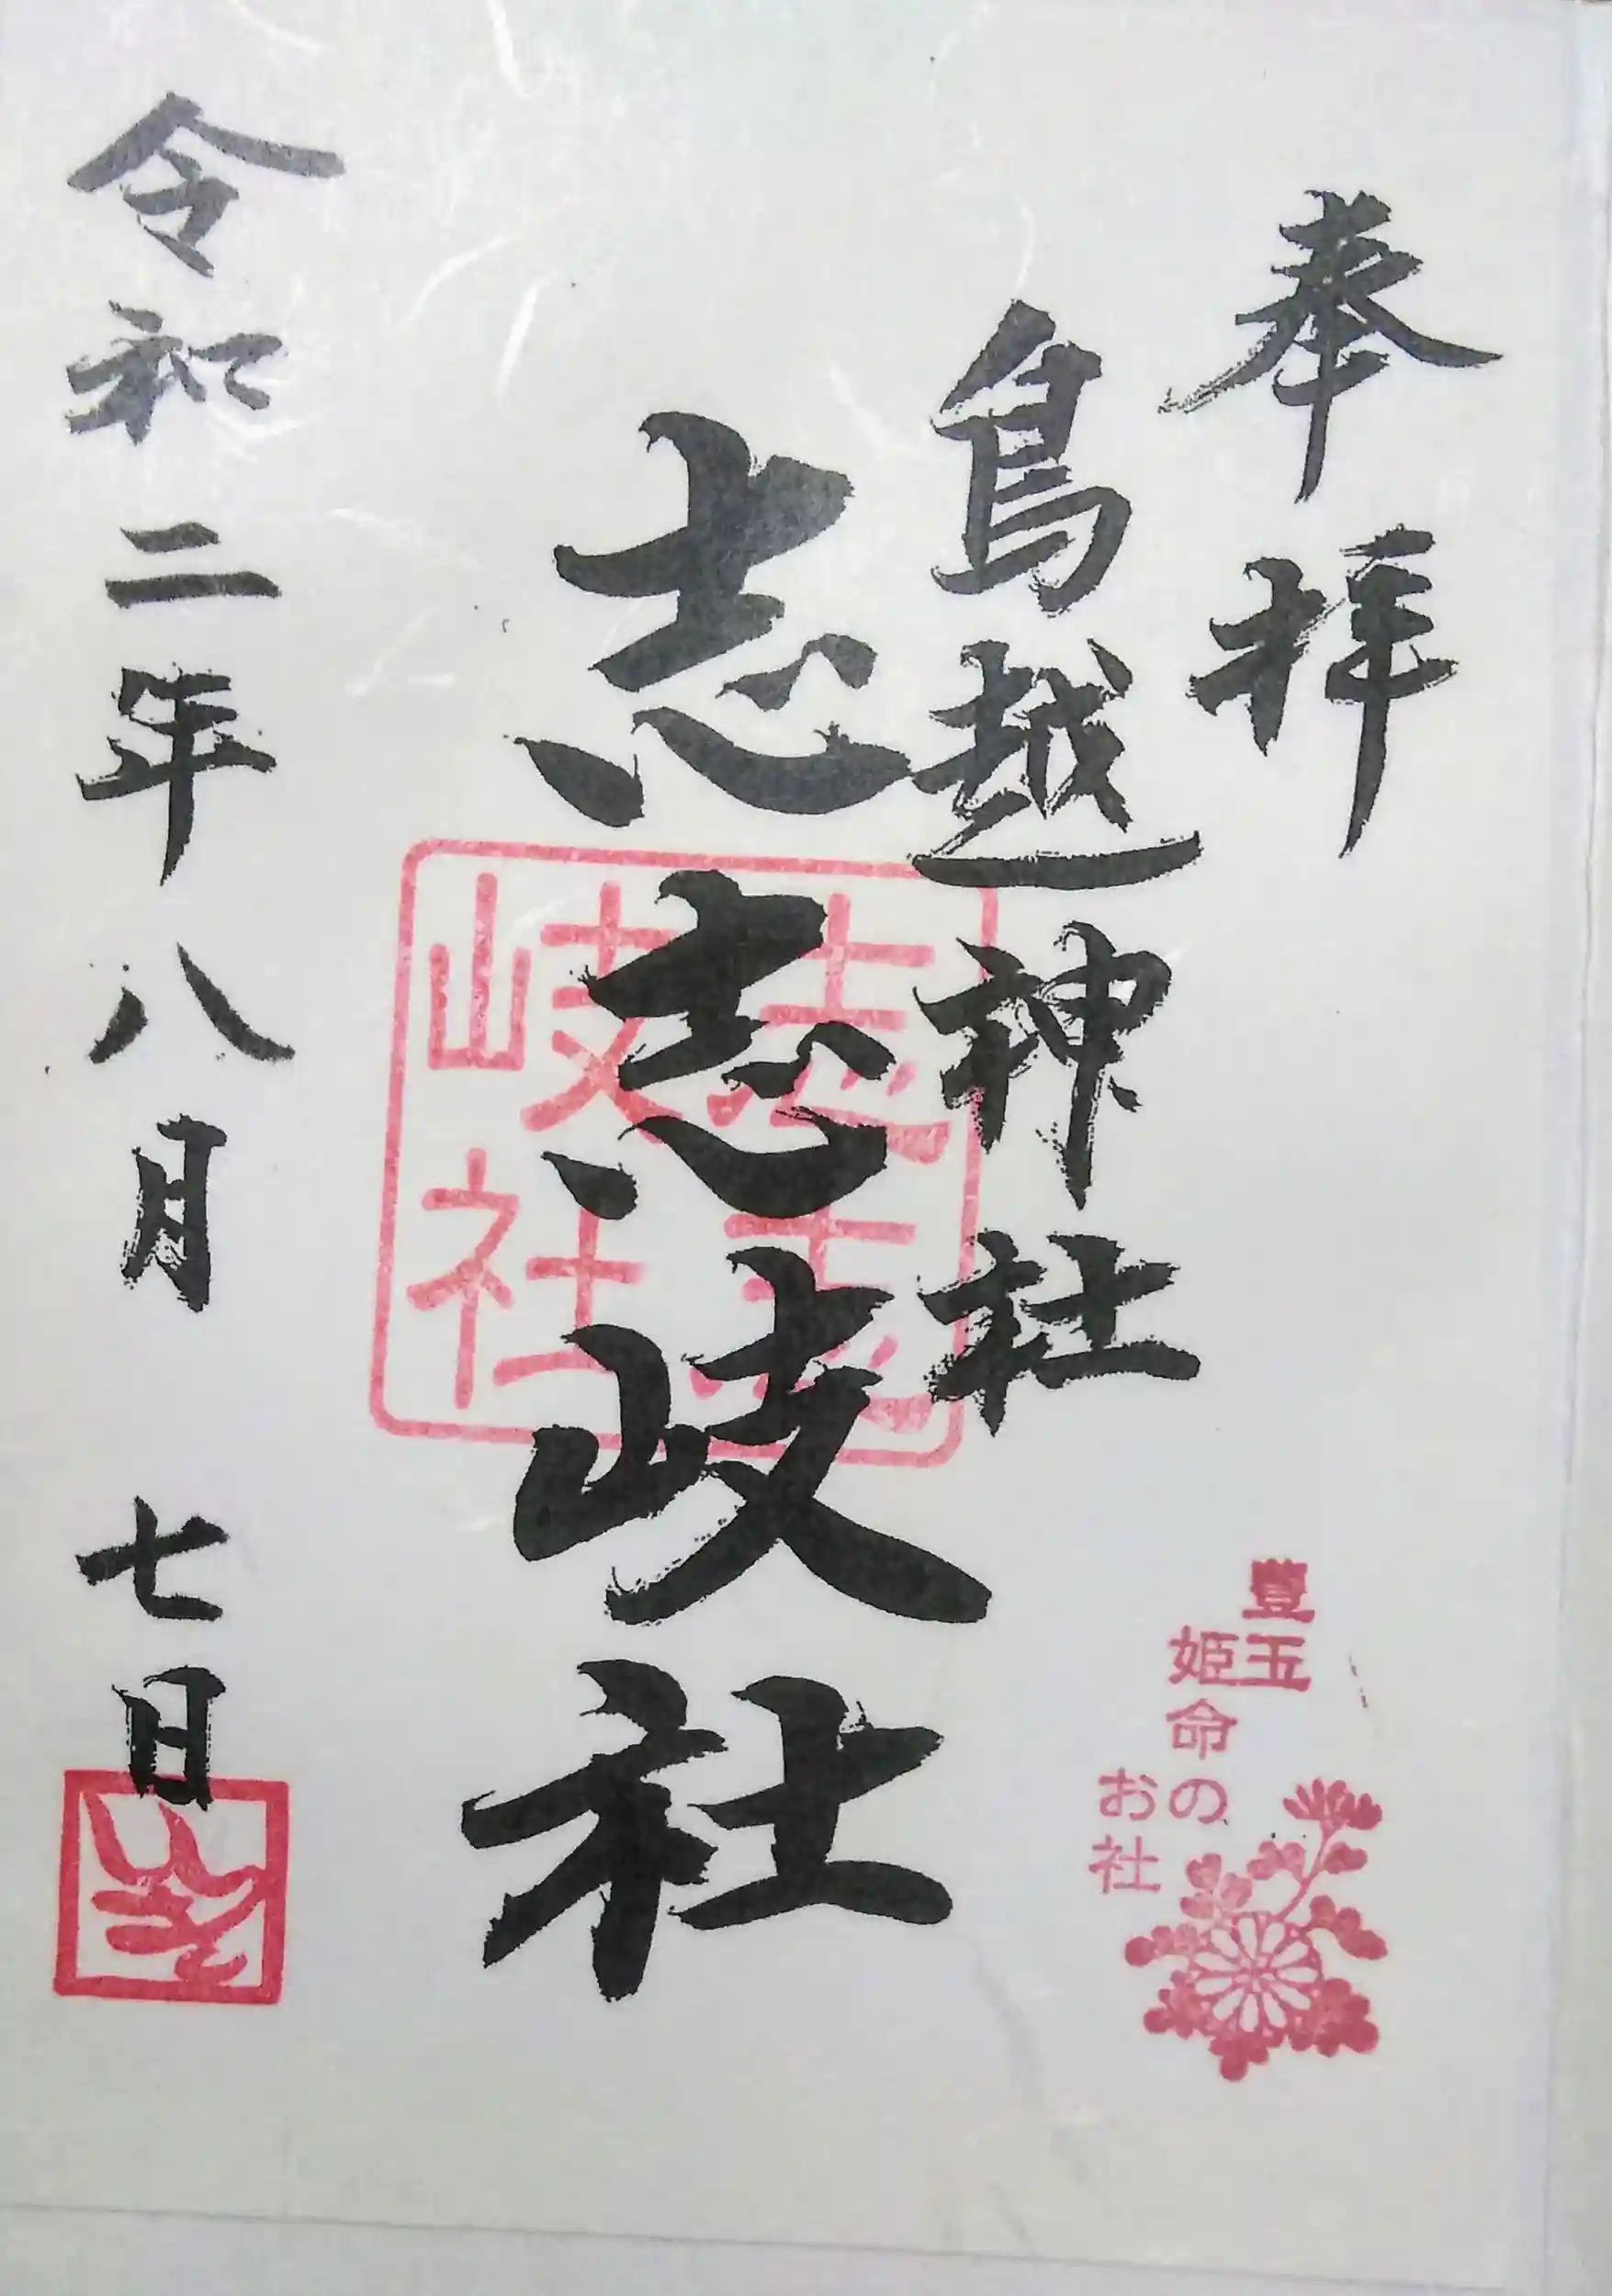 奉拝
鳥越神社
志志岐社
志志
岐社
豊玉
姫命の
お社
令和二年八月七日